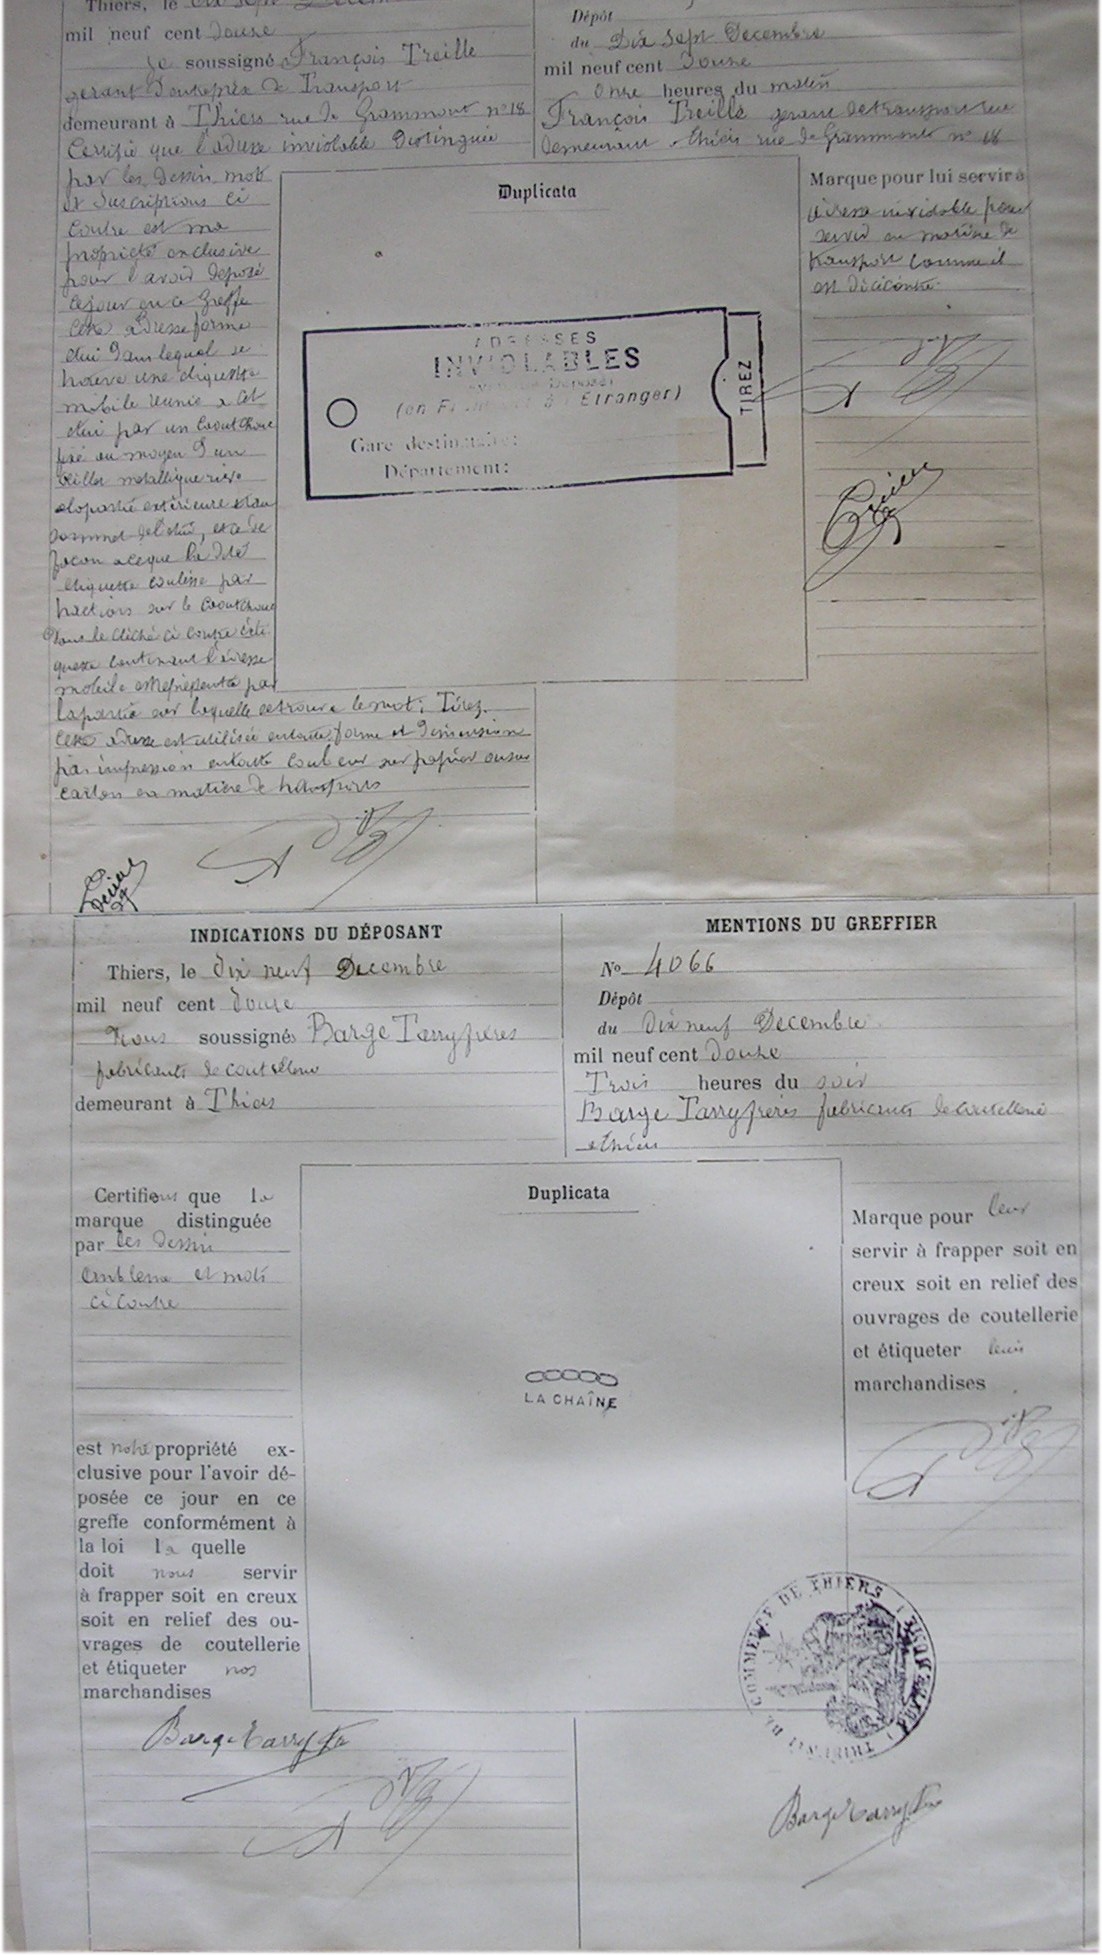 Thiers, le dix sept Décembre
mil neuf cent douze
Je soussigné François Treille
gérant d'entreprise de Transport
demeurant à Thiers rue de Grammont n° 18
Certifie que l'adresse inviolable distinguée
par les dessin mots
et suscriptions ci
contre est ma
propriété exclusive
pour l'avoir déposé
ce jour en ce Greffe
Cette adresse forme
étui dans lequel se
trouve une étiquette
mobile réunie a cet
étui par un caoutchouc
fixé au moyen d'un
œillet métallique
partie extérieure
sommet de l'étui, et ce de
façon a ce que la dite
étiquette coulisse par
tractions sur le caoutchouc
Dans le cliché ci contre l'éti
quette contenant l'adresse
mobile est représentée par
la partie sur laquelle se trouve le mot: Tirez.
Cette adresse est utilisée en toute forme et dimension
par impression en toute couleur sur papier ou sur
carton en matière de transports
Treille
Dépôt
du Dix Sept Decembre
mil neuf cent Douze
Onze heures du matin
François Treille gérant de transport
demeurant a thiers rue de Grammont n° 18
Duplicata
ADRESSES
INVIOLABLES
(en France et à l'Etranger)
Gare destinataire:
Département:
TIREZ
Marque pour lui servir à
adresse inviolable pour
servir en matière de
transport comme il
est dit ci contre
Treille
INDICATIONS DU DÉPOSANT
Thiers, le dix neuf Decembre
mil neuf cent douze
Nous soussignés Barge Tarry frères
fabricants de coutellerie
demeurant à Thiers
MENTIONS DU GREFFIER
No 4066
Dépôt
du dix neuf Decembre
mil neuf cent Douze
Trois heures du soir
Barge Tarry frères fabricants de coutellerie
a thiers
Certifions que la
marque distinguée
par les dessin
emblème et mots
ci contre
est notre propriété ex-
clusive pour l'avoir dé-
posée ce jour en ce
greffe conformément à
la loi la quelle
doit nous servir
à frapper soit en creux
soit en relief des ou-
vrages de coutellerie
et étiqueter nos
marchandises
Barge Tarry fres
Duplicata
LA CHAÎNE
Marque pour leur
servir à frapper soit en
creux soit en relief des
ouvrages de coutellerie
et étiqueter leurs
marchandises
TRIBUNAL DE COMMERCE DE THIERS
Barge Tarry fres